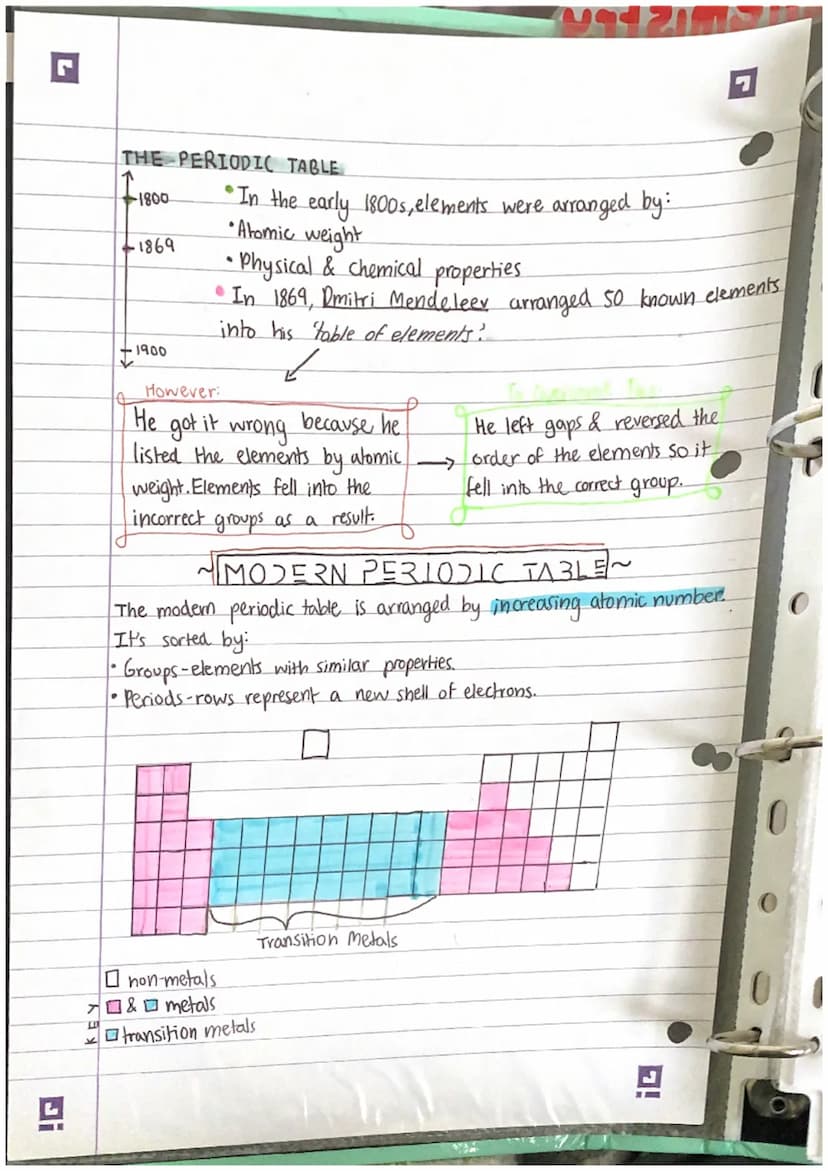 THE PERIODIC TABLE
1800
1869
1900
• In the early 1800s, elements were arranged by:
• Atomic weight
• Physical & chemical properties
• In 1869, Dmitri Mendeleev arranged 50 known elements
into his 'table of elements'.
However:
He got it wrong because he
listed the elements by atomic
weight. Elements fell into the
incorrect groups as a result.
To Overcome This:
He left gaps & reversed the
order of the elements so it
fell into the correct group.
~MODERN PERIODIC TABLE~
The modern periodic table is arranged by increasing atomic number.
It's sorted by:
• Groups-elements with similar properties.
• Periods-rows represent a new shell of electrons.
Transition Metals
KEY
non-metals
& metals
transition metals